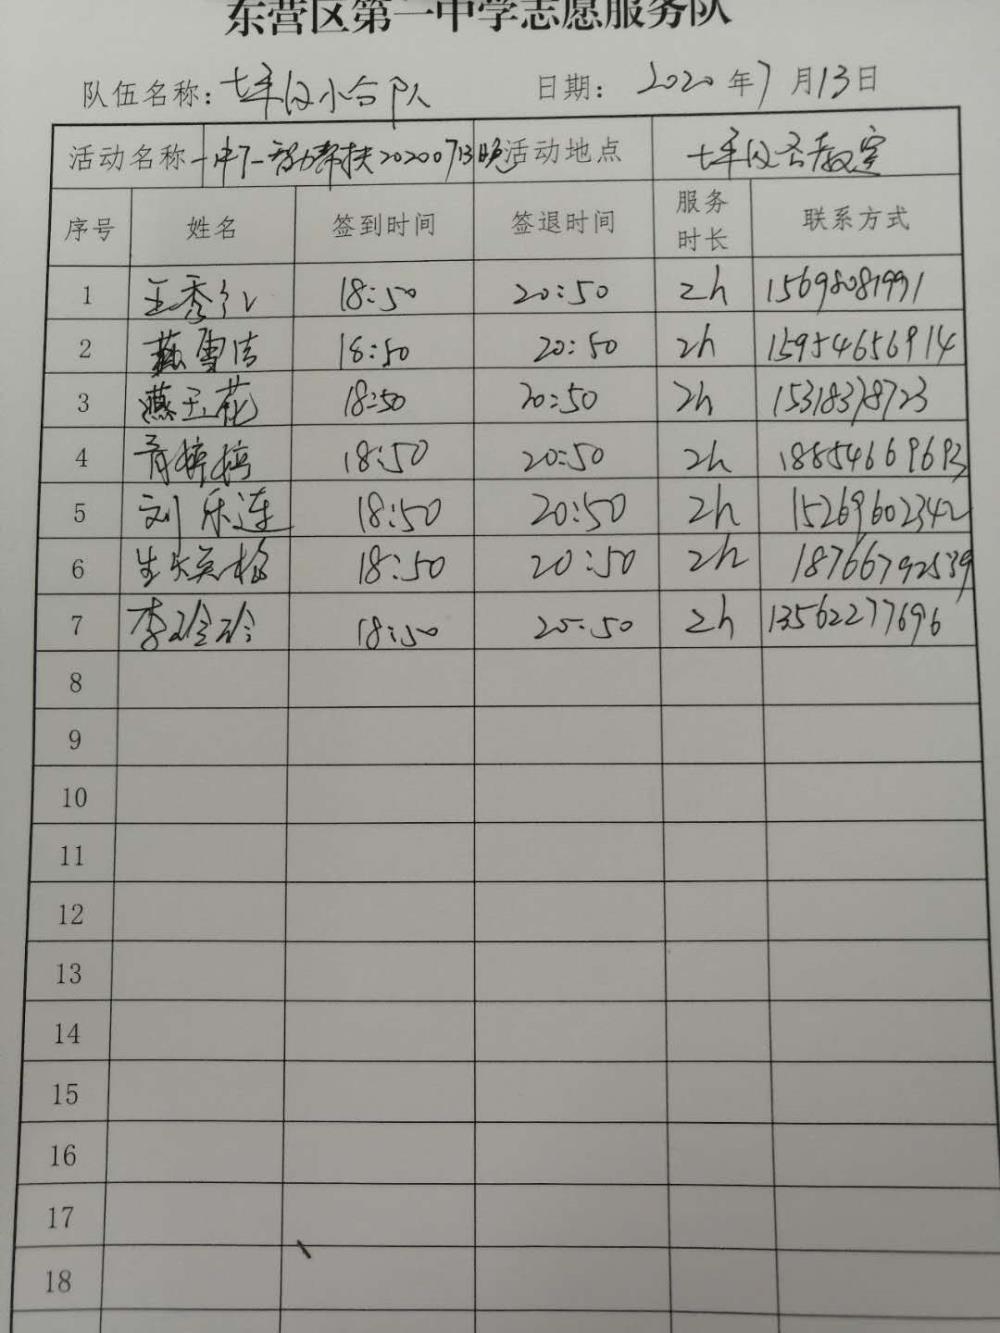 东营区第一中学志愿服务队
队伍名称：七年级小合队 日期：2020年7月13日
活动名称 一中丁一智力帮扶20200713晚 活动地点 七年级各教室
序号 姓名 签到时间 签退时间 服务时长 联系方式
1 王秀红 18:50 20:50 2h 15698081991
2 燕雪洁 18:50 20:50 2h 15954656914
3 燕玉花 18:50 20:50 2h 15318378723
4 18:50 20:50 2h 18854669693
5 刘乐连 18:50 20:50 2h 15269602342
6 18:50 20:50 2h 18766792539
7 李玲玲 18:50 20:50 2h 13562277696
8
9
10
11
12
13
14
15
16
17
18